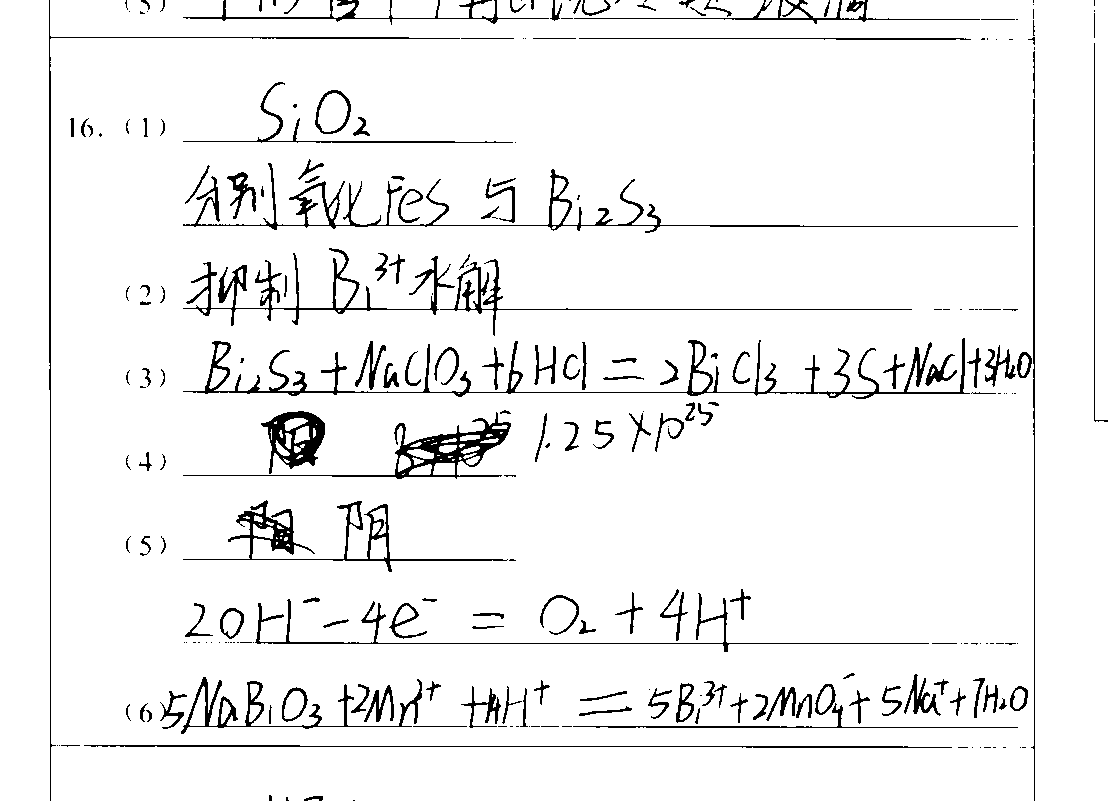 16. (1) SiO₂
分别氧化FeS 与 Bi₂S₃
(2) 抑制 Bi³⁺水解
(3) Bi₂S₃+NaClO₃+6HCl=2BiCl₃+3S+NaCl+3H₂O
(4) 1.25×10²⁵
(5) 阴
2OH⁻-4e⁻=O₂+4H⁺
(6) 5NaBiO₃+2Mn²⁺+14H⁺=5Bi³⁺+2MnO₄⁻+5Na⁺+7H₂O